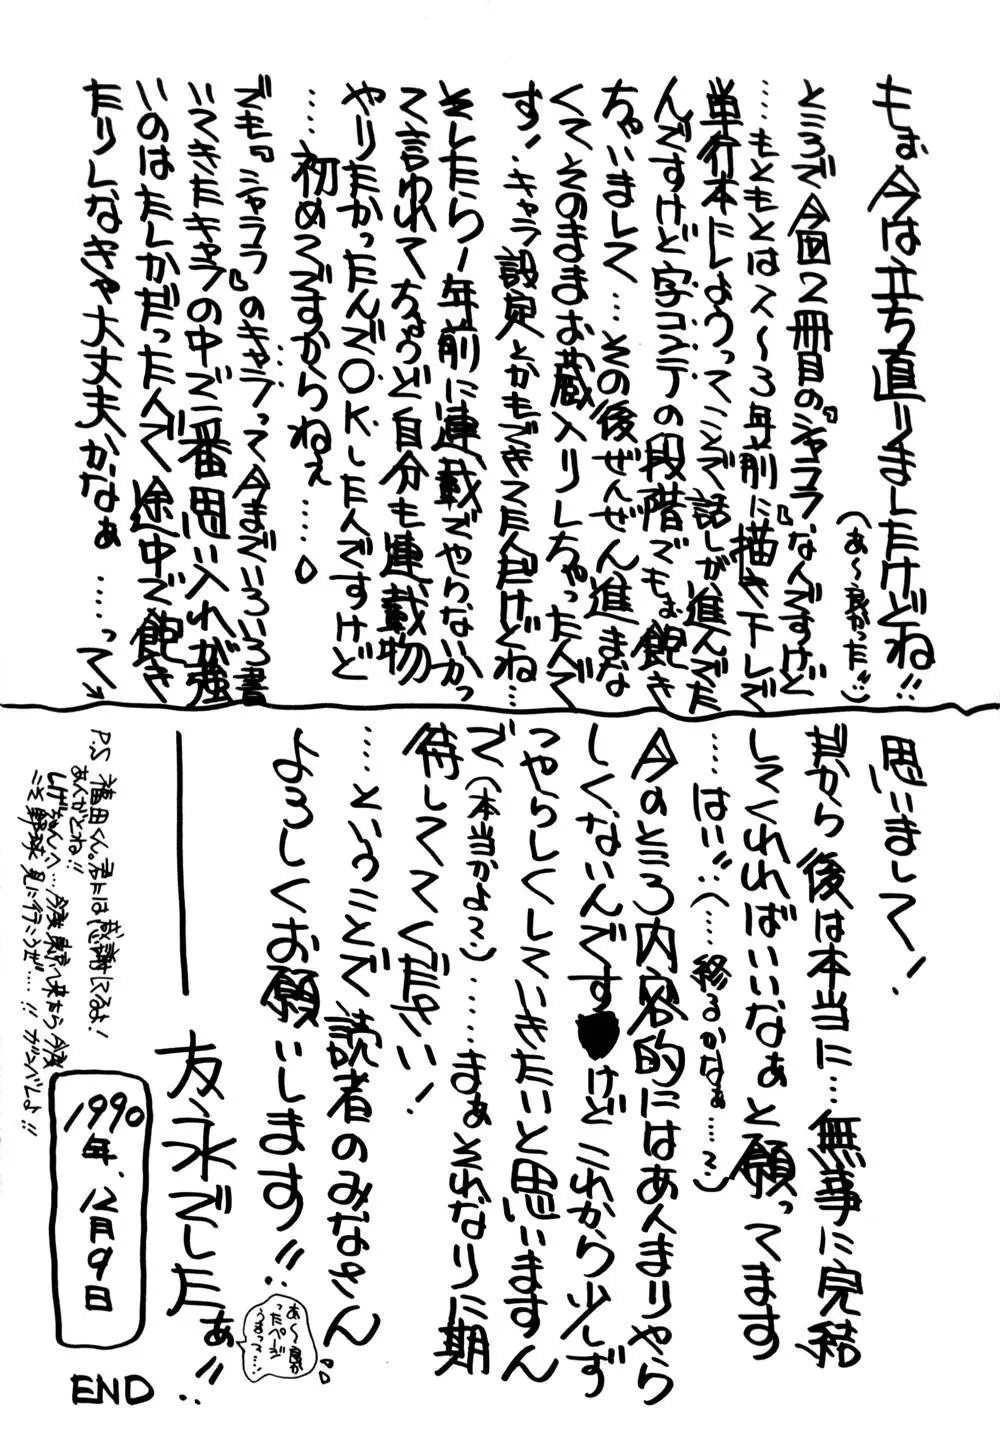 もぉ今は立ち直りましたけどね!!
(あ〜良かった…)
ところで今回2冊目の『シャラコラ』なんですけど
……もともとは2〜3年前に描き下しで
単行本にしようってことで話しが進んでた
んですけど字コンテの段階でもぉ飽き
ちゃいまして…その後ぜんぜん進まな
くてそのままお蔵入りしちゃったんで
す!キャラ設定とかもできてたんだけどね…
そしたら1年前に連載でやらないかっ
て言われてちょうど自分も連載物
やりたかったんでOKしたんですけど
……初めてですからねぇ……。
でも『シャラコラ』のキャラって今までいろいろ書
いてきたキャラの中で一番思い入れが強
いのはたしかだったんで途中で飽き
たりしなきゃ大丈夫かなぁ……って
思いまして!
だから後は本当に…無事に完結
してくれればいいなぁと願ってます
……はい…(……終るかなぁ……)
今のところ内容的にはあんまりやら
しくないんです♥けどこれから少しず
つやらしくしていきたいと思いますん
で(本当かよ〜)……まぁそれなりに期
待してて下さい!
……ということで読者のみなさん
よろしくお願いします!!
あ〜良か
ったページ
うまって…
――友永でしたぁ!!
P.S 福田くん。君には感謝してるよ!
あんがとね!!
しげちゃんへ…今度東京へ来たら今度
こそ野球見に行こうぜ……!!ガンバしよ!!
1990年、12月9日
END